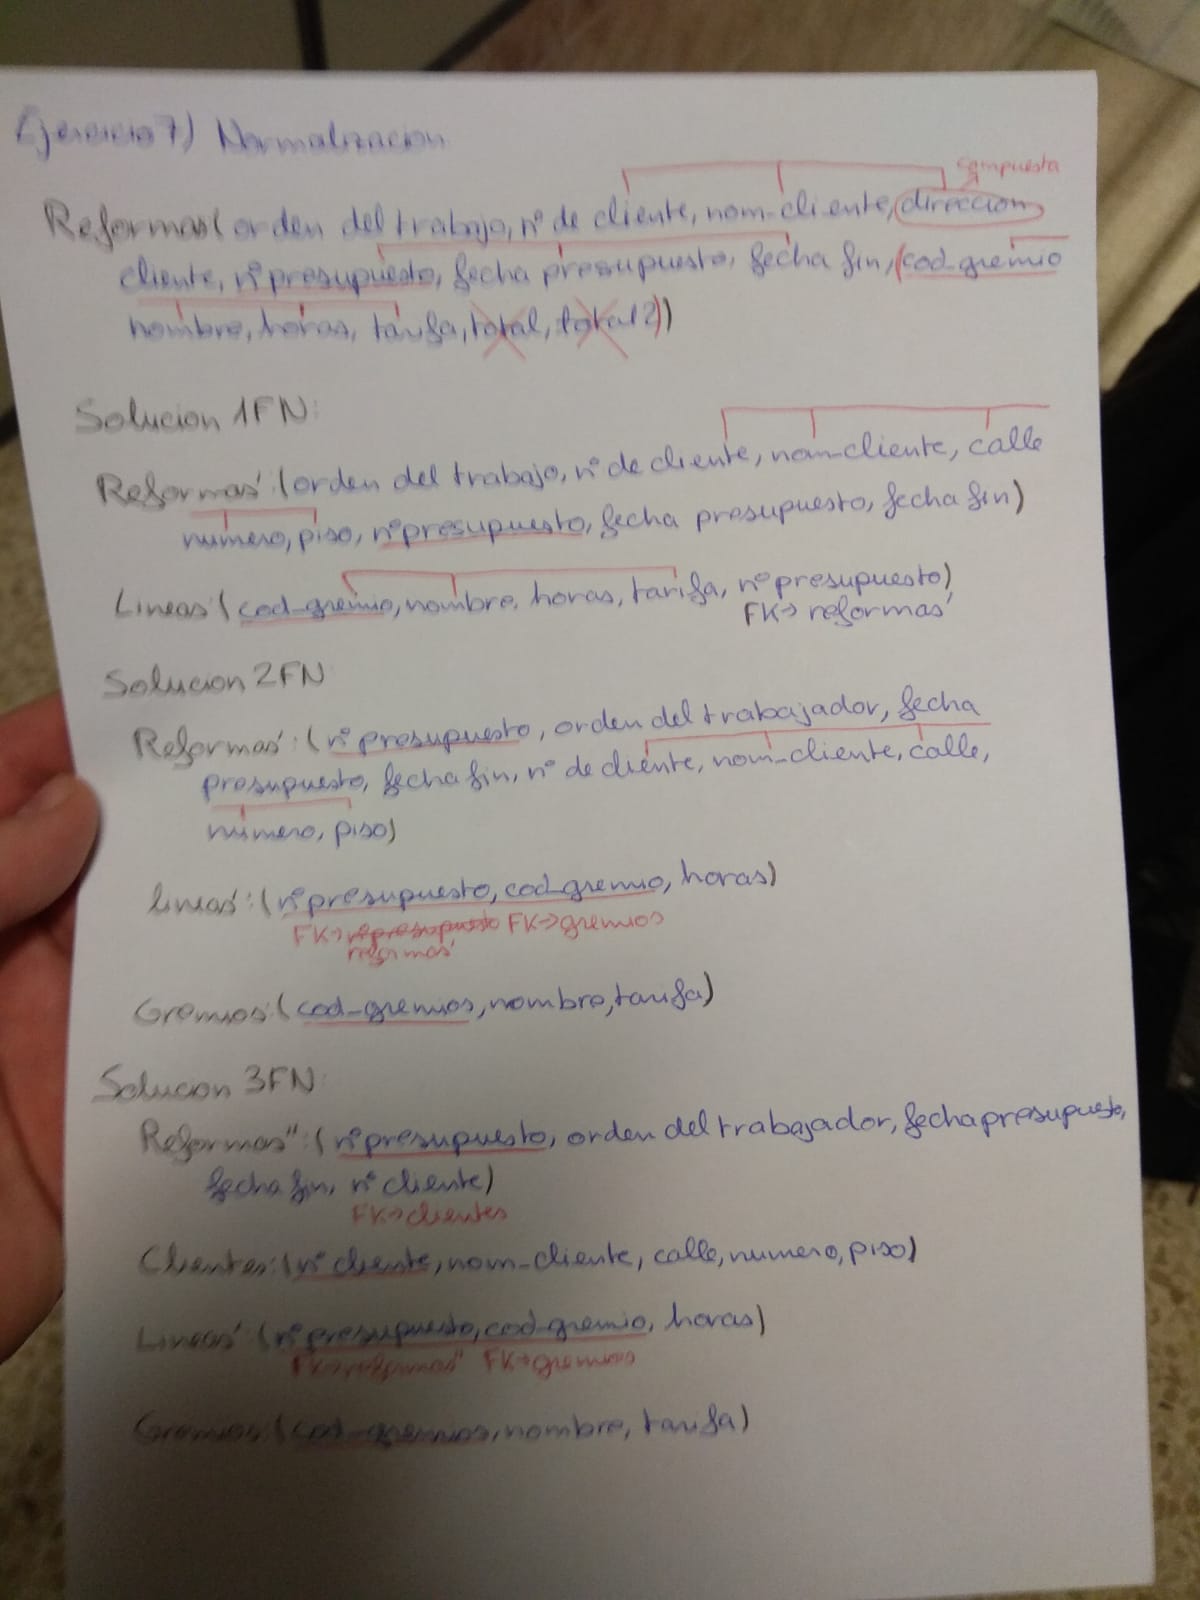 Ejercicio 7) Normalizacion
compuesta
Reformas (orden del trabajo, nº de cliente, nom-cliente, direccion
cliente, nº presupuesto, fecha presupuesto, fecha fin, (cod_gremio
nombre, horas, tarifa, total, total 2))
Solucion 1FN:
Reformas' (orden del trabajo, nº de cliente, nom-cliente, calle
numero, piso, nº presupuesto, fecha presupuesto, fecha fin)
Lineas (cod_gremio, nombre, horas, tarifa, nº presupuesto)
FK→ reformas'
Solucion 2FN
Reformas': (nº presupuesto, orden del trabajador, fecha
presupuesto, fecha fin, nº de cliente, nom_cliente, calle,
número, piso)
lineas': (nº presupuesto, cod_gremio, horas)
FK→ nºpresupuesto FK→gremios
reformas'
Gremios: (cod_gremios, nombre, tarifa)
Solucion 3FN:
Reformas": (nº presupuesto, orden del trabajador, fecha presupuesto,
fecha fin, nº cliente)
FK→clientes
Clientes: (nº cliente, nom_cliente, calle, numero, piso)
Lineas' (nº presupuesto, cod_gremio, horas)
FK→reformas" FK→gremios
Gremios: (cod_gremios, nombre, tarifa)